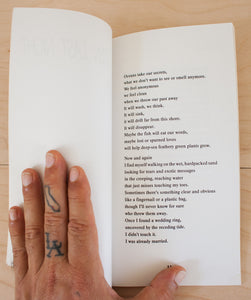 Oceans take our secrets,
what we don't want to see or smell anymore.
We feel anonymous
we feel clean
when we throw our past away
It will wash, we think.
It will sink,
it will drift far from this shore.
It will disappear.
Maybe the fish will eat our words,
maybe lost or spurned loves
will help deep-sea feathery green plants grow.
Now and again
I find myself walking on the wet, hardpacked sand
looking for tears and exotic messages
in the creeping, reaching water
that just misses touching my toes.
Sometimes there's something clear and obvious
like a fingernail or a plastic bag,
though I'll never know for sure
who threw them away.
Once I found a wedding ring,
uncovered by the receding tide.
I didn't touch it.
I was already married.